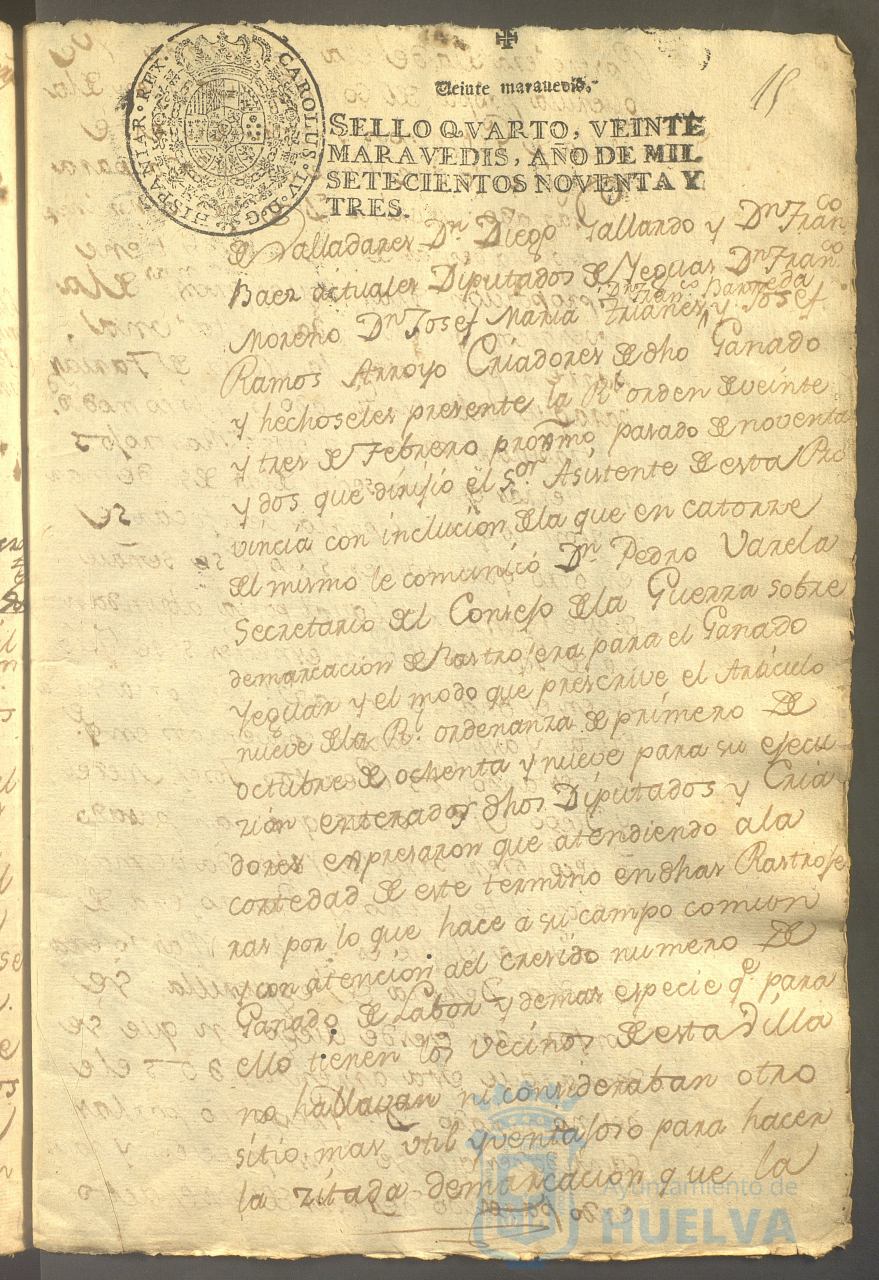 HISPANIAR·REX· CAROLUS·IV·D·G·
Veinte maravedis.
15
SELLO QVARTO, VEINTE
MARAVEDIS, AÑO DE MIL
SETECIENTOS NOVENTA Y
TRES.
de Valladares Dn Diego Gallardo y Dn Franco
Baez actuales Diputados de Yeguas Dn Franco
Dn Franco Barreda
Moreno Dn Josef Maria Trianes y Josef
Ramos Arroyo Criadores de dho Ganado
y hechoseles presente la Rl orden de veinte
y tres de Febrero proxmo pasado de noventa
y dos que dirijió el Sor Asistente de esta Pro
vincia con inclucion de la que en catorze
del mismo le comunicó Dn Pedro Varela
Secretario del Consejo de la Guerra sobre
demarcacion de Rastrojera para el Ganado
Yeguar y el modo que prescrive el Artículo
nueve de la Rl ordenanza de primero de
octubre de ochenta y nueve para su ejecu
zión enterados dhos Diputados y Cria
dores expresaron que atendiendo a la
cortedad de este termino en dhas Rastroje
ras por lo que hace a su campo comun
y con atención al cresido numero de
Ganado de Labor y demas especie qe para
ello tienen los vecinos de esta Villa
no hallavan ni consideraban otro
sitio mas util y ventajoso para hacer
la zitada demarcacion que la
Ayuntamiento de
HUELVA